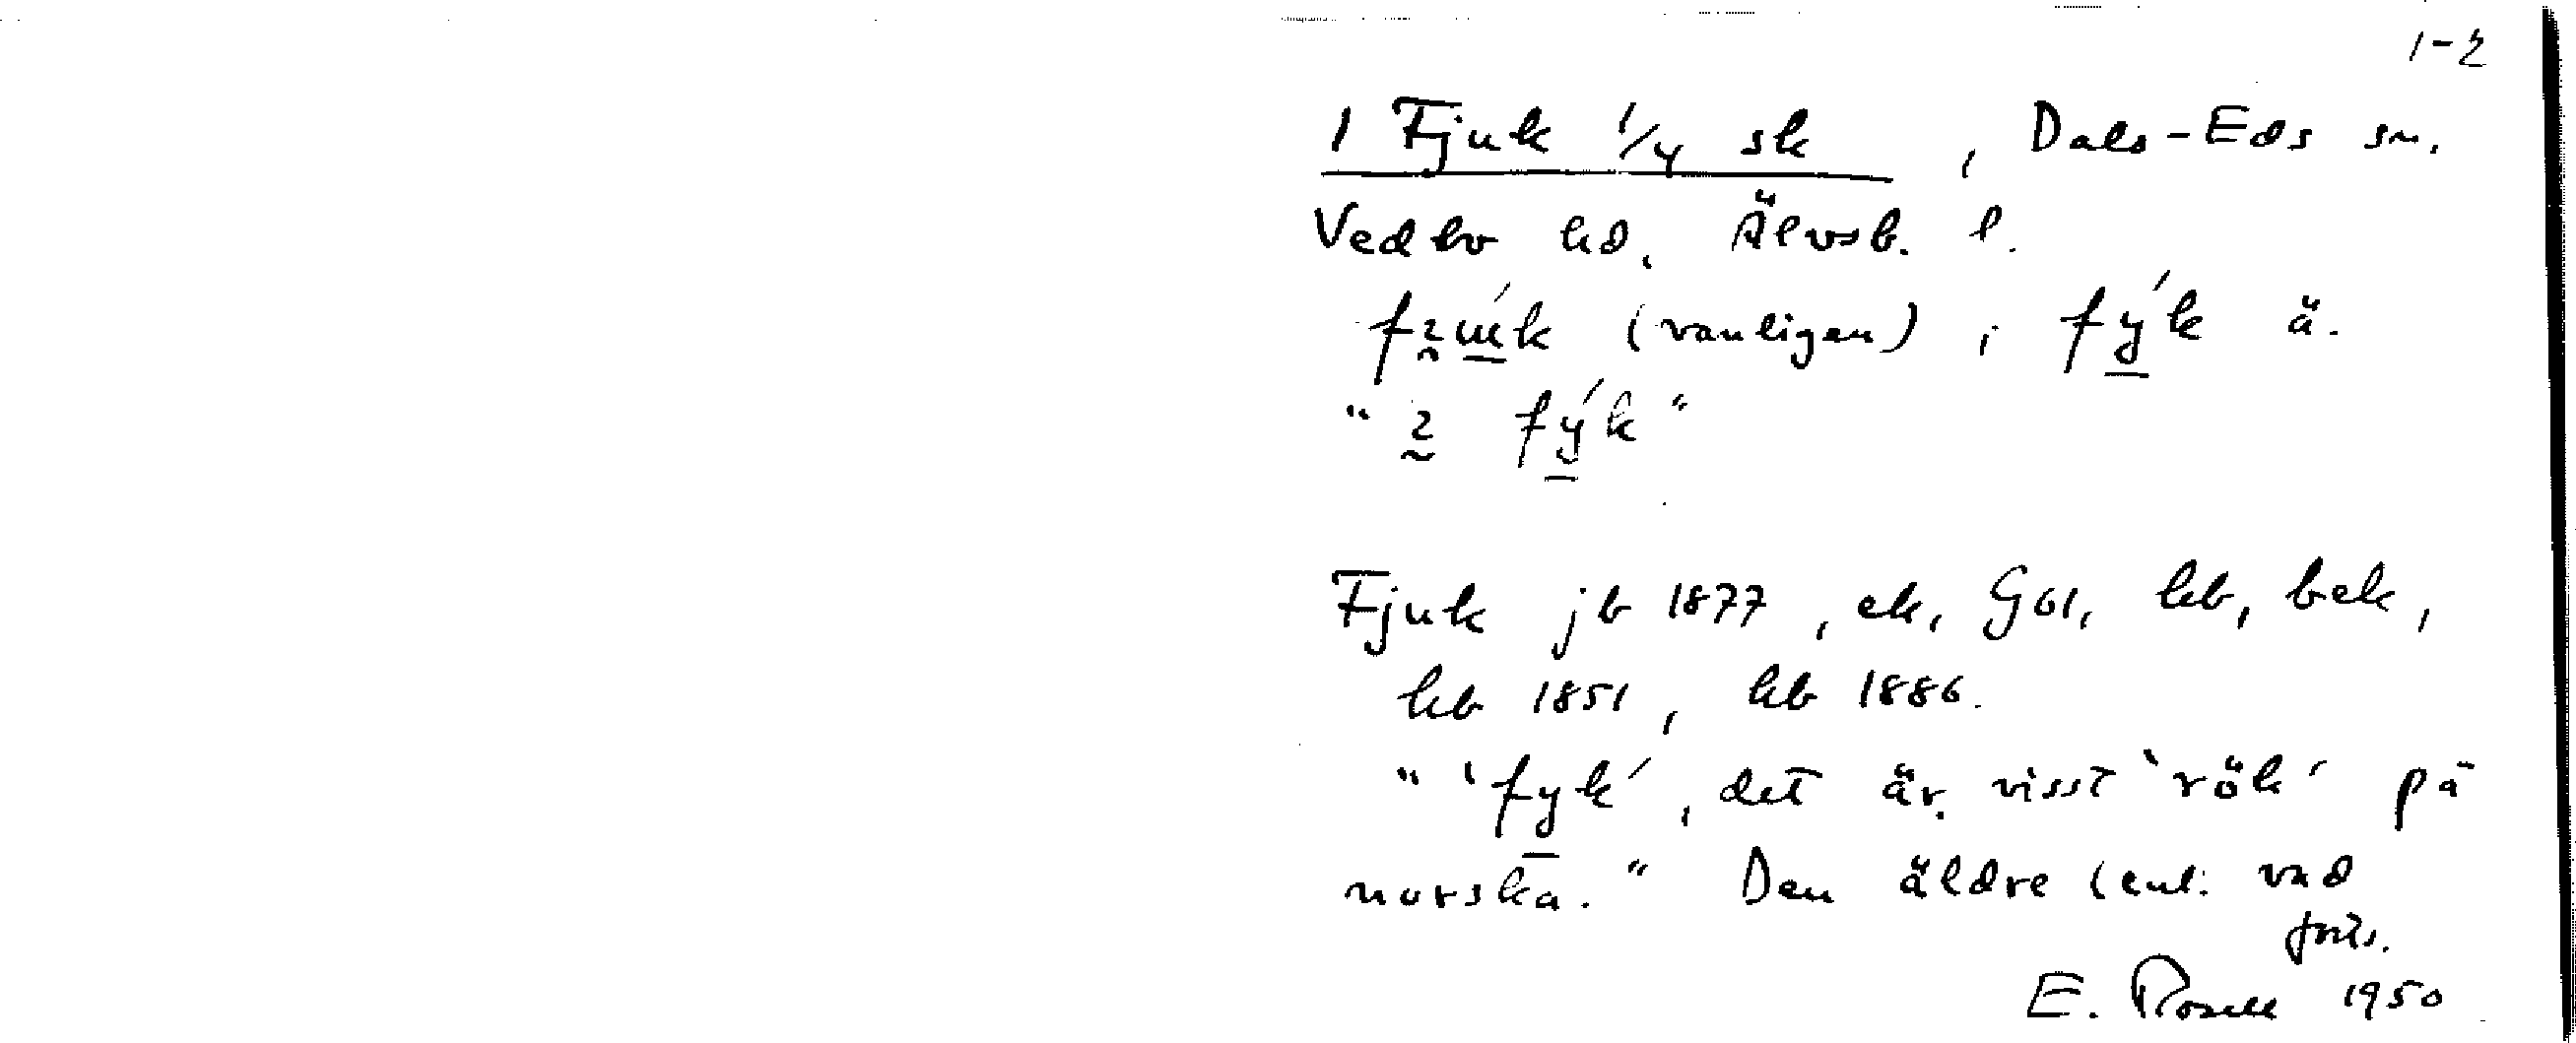 1-2
1 Fjuk 1/4 sk, Dals-Eds sn.
Vedbo hd, Älvsb. l.
(vanligen), fýk ä.
" fýk"
Fjuk jb 1877, ek, G61, kb, bek,
hb 1851, kb 1886.
"'fyk', det är visst 'rök' på
norska." Den äldre (enl. vad
forts.
E. Rosell 1950